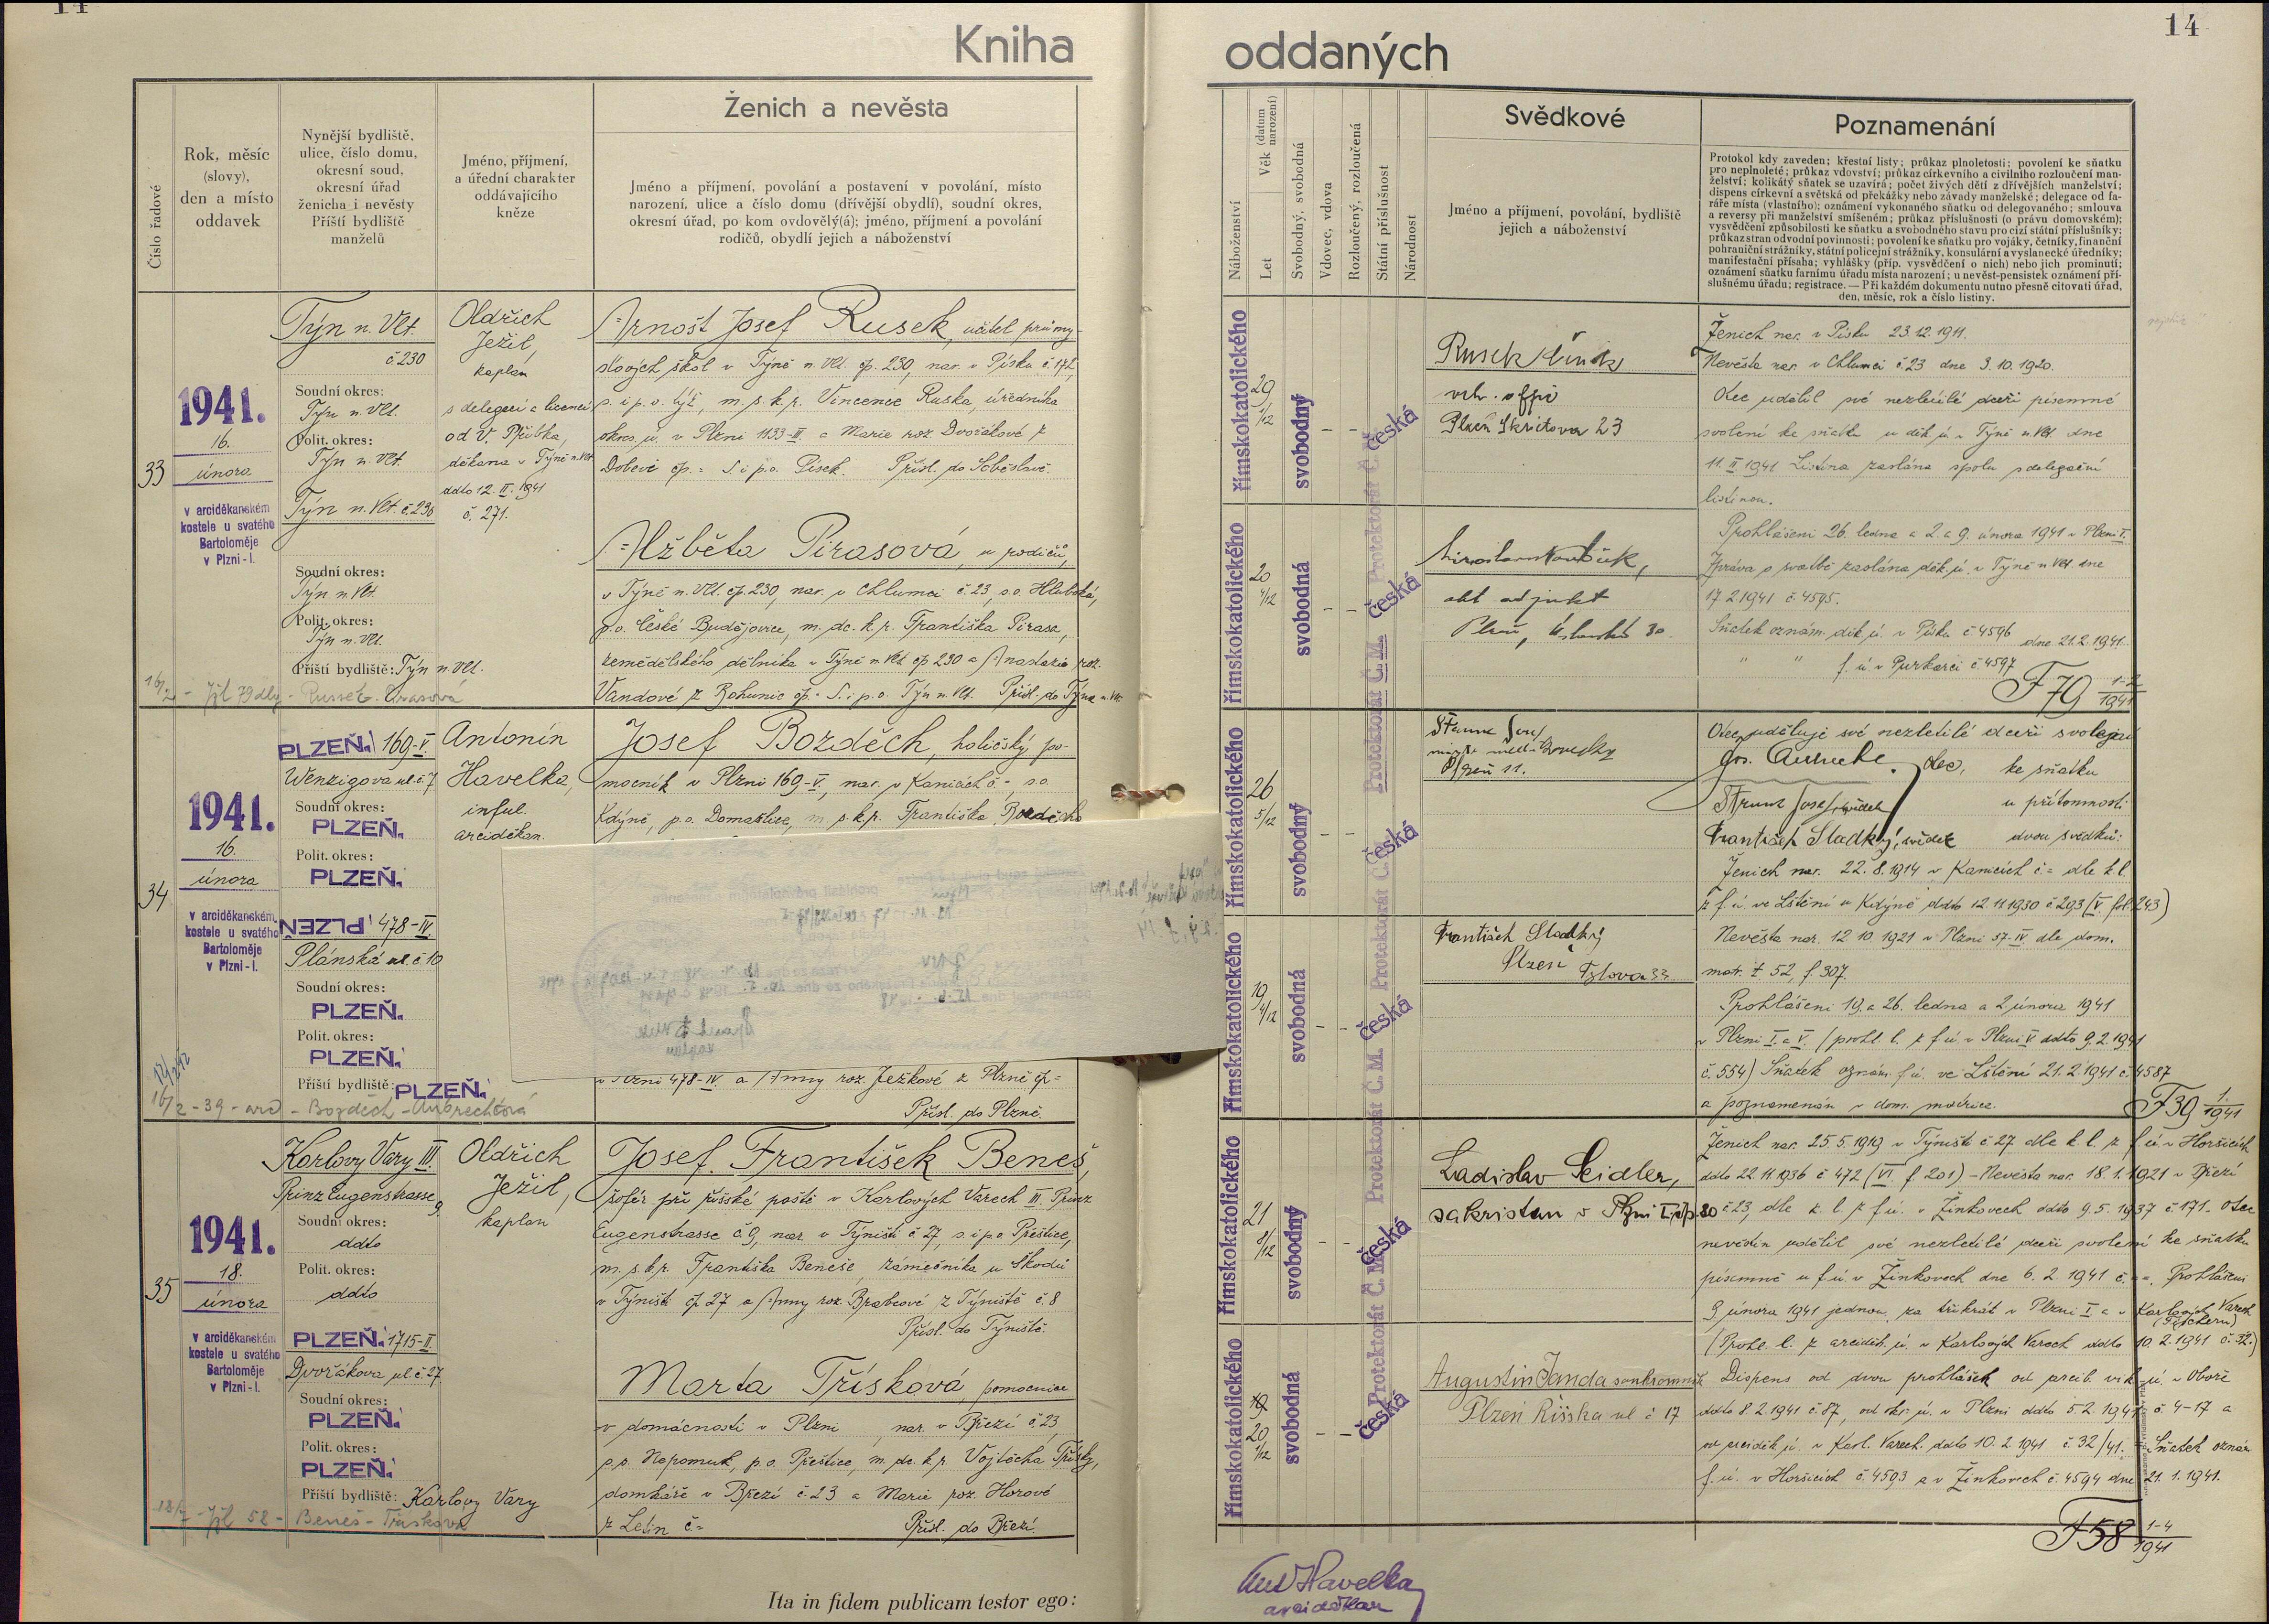 14
Kniha
Číslo řadové
Rok, měsíc
(slovy),
den a místo
oddavek
Nynější bydliště,
ulice, číslo domu,
okresní soud,
okresní úřad
ženicha i nevěsty
Příští bydliště
manželů
Jméno, příjmení,
a úřední charakter
oddávajícího
kněze
Ženich a nevěsta
Jméno a příjmení, povolání a postavení v povolání, místo
narození, ulice a číslo domu (dřívější obydlí), soudní okres,
okresní úřad, po kom ovdovělý(á); jméno, příjmení a povolání
rodičů, obydlí jejich a náboženství
33
1941.
16.
února
v arciděkanském
kostele u svatého
Bartoloměje
v Plzni-I.
Týn n. Vlt.
č 230
Soudní okres:
Týn n. Vlt.
Polit. okres:
Týn n. Vlt.
Týn n. Vlt. č. 230
Soudní okres:
Týn n. Vlt.
Polit. okres:
Týn n. Vlt.
Příští bydliště: Týn n. Vlt.
Oldřich
Ježil,
kaplan
s delegací a licencí
od V. Přibka,
děkana v Týně n. Vlt.
ddto 12. II. 1941
č. 271.
Arnošt Josef Rusek, učitel průmy-
slových škol v Týně n. Vlt. čp. 230, nar. v Písku č. 172,
s. i p. o. týž, m. s. k. p. Vincence Ruska, úředníka
okres. ú. v Plzni 1133-II. a Marie roz. Dvořákové z
Dobevi čp. = S. i p. o. Písek. Přísl. do Soběslavě.
Alžběta Pirasová, u rodičů,
v Týně n. Vlt. čp. 230, nar. v Chlumci č. 23, s. o. Hluboká,
p. o. České Budějovice, m. dc. k. p. Františka Pirasa,
zemědělského dělníka v Týně n. Vlt. čp 230 a Anastazie roz.
Vandové z Bohunic čp. - S. i p. o. Týn n. Vlt. Přísl. do Týna n. Vlt.
34
1941.
16.
února
v arciděkanském
kostele u svatého
Bartoloměje
v Plzni-I.
PLZEŇ. 169-V.
Wenzigova ul. č. 7
Soudní okres:
PLZEŇ.
Polit. okres:
PLZEŇ.
PLZEŇ. 478-IV.
Plánská ul. č. 10
Soudní okres:
PLZEŇ.
Polit. okres:
PLZEŇ.
Příští bydliště: PLZEŇ.
16/2 - 39 - arc - Bozděch - Aubrechtová
Antonín
Havelka,
inful.
arciděkan.
Josef Bozděch, holičský po-
mocník v Plzni 169-V., nar. v Kanicích č. -, s. o.
Kdýně, p. o. Domažlice, m. s. k. p. Františka Bozděcha
v Plzni 478-IV. a Anny roz. Ježkové z Plzně čp =
Přísl. do Plzně.
35
1941.
18.
února
v arciděkanském
kostele u svatého
Bartoloměje
v Plzni-I.
Karlovy Vary III.
Prinz Eugenstrasse
9.
Soudní okres:
ddto
Polit. okres:
ddto
PLZEŇ. 1715-II.
Dvořákova ul. č. 27.
Soudní okres:
PLZEŇ.
Polit. okres:
PLZEŇ.
Příští bydliště: Karlovy Vary
Oldřich
Ježil,
kaplan
Josef František Beneš,
šofér při říšské poště v Karlových Varech III. Prinz
Eugenstrasse č. 9, nar. v Týništi č. 27, s. i p. o. Přeštice,
m. s. k. p. Františka Beneše, zámečníka u Škodů
v Týništi čp. 27 a Anny roz. Brabcové z Týniště č. 8
Přísl. do Týniště.
Marta Třísková, pomocnice
v domácnosti v Plzni, nar. v Březí č. 23,
s. o. Nepomuk, p. o. Přeštice, m. dc. k. p. Vojtěcha Třísky,
domkáře v Březí č. 23 a Marie roz. Horové
z Letin č. =
Přísl. do Březí.
Ita in fidem publicam testor ego:
oddaných
14
Náboženství
Let
Věk (datum narození)
Svobodný, svobodná
Vdovec, vdova
Rozloučený, rozloučená
Státní příslušnost
Národnost
Svědkové
Jméno a příjmení, povolání, bydliště
jejich a náboženství
Poznamenání
Protokol kdy zaveden; křestní listy; průkaz plnoletosti; povolení ke sňatku
pro neplnoleté; průkaz vdovství; průkaz církevního a civilního rozloučení man-
želství; kolikátý sňatek se uzavírá; počet živých dětí z dřívějších manželství;
dispens církevní a světská od překážky nebo závady manželské; delegace od fa-
ráře místa (vlastního); oznámení vykonaného sňatku od delegovaného; smlouva
a reversy při manželství smíšeném; průkaz příslušnosti (o právu domovském);
vysvědčení způsobilosti ke sňatku a svobodného stavu pro cizí státní příslušníky;
průkaz stran odvodní povinnosti; povolení ke sňatku pro vojáky, četníky, finanční
pohraniční strážníky, státní policejní strážníky, konsulární a vyslanecké úředníky;
manifestační přísaha; vyhlášky (příp. vysvědčení o nich) nebo jich prominutí;
oznámení sňatku farnímu úřadu místa narození; u nevěst-pensistek oznámení pří-
slušnému úřadu; registrace. — Při každém dokumentu nutno přesně citovati úřad,
den, měsíc, rok a číslo listiny.
římskokatolického
29
svobodný
česká
Protektorát Č.M.
Rusek
Plzeň Skrétova 23
římskokatolického
20
svobodná
česká
Plzeň,
Ženich nar. v Písku 23. 12. 1911.
Nevěsta nar. v Chlumci č. 23 dne 3. 10. 1920.
Otec udělil své nezletilé dceři písemné
svolení ke sňatku u děk. ú. v Týně n. Vlt. dne
11. II. 1941 Listina zaslána spolu s delegační
listinou.
Prohlášeni 26. ledna a 2. a 9. února 1941 v Plzni I.
Zpráva o svatbě zaslána děk. ú. v Týně n. Vlt. dne
17. 2. 1941 č. 4595.
Sňatek oznám. děk. ú. v Písku č. 4596
dne 21. 2. 1941.
" " f. ú. v Purkarci č. 4597
F 79 1-2/1941
římskokatolického
26
5/12
svobodný
česká
Protektorát Č.M.
Plzeň 11.
římskokatolického
19
4/12
svobodná
česká
František Sladký
Plzeň
Tylova 33
Otec uděluje své nezletilé dceři svolení
ke sňatku
u přítomnosti
František Sladký, svědek dvou svědků:
Ženich nar. 22. 8. 1914 v Kanicích č. = dle k. l.
z f. ú. ve Lštění u Kdýně ddto 12. 11. 1930 č. 293 (V. fol. 243)
Nevěsta nar. 12. 10. 1921 v Plzni 57-IV dle dom.
matr. t. 52, f. 307.
Prohlášeni 19. a 26. ledna a 2. února 1941
v Plzni I. a V. (prohl. l. z f. ú. v Plzni V ddto 9. 2. 1941
č. 554) Sňatek oznám. f. ú. ve Lštění 21. 2. 1941 č. 4587
a poznamenán v dom. matrice.
F 39 1./1941
římskokatolického
21
8/12
svobodný
česká
Protektorát Č.M.
Ladislav Seidler,
sakristan v Plzni I. čp. 80
římskokatolického
20
1/12
svobodná
česká
Protektorát Č.M.
Augustin Janda soukromník
Plzeň Říšska ul č 17
Ženich nar. 25. 5. 1919 v Týništi č. 27 dle k. l. z f. ú. v Horšicích
ddto 22. 11. 1936 č. 472 (VI. f. 201) - Nevěsta nar. 18. 1. 1921 v Březí
č. 23, dle k. l. z f. ú. v Žinkovech ddto 9. 5. 1937 č. 171. Otec
nevěstin udělil své nezletilé dceři svolení ke sňatku
písemně u f. ú. v Žinkovech dne 6. 2. 1941 č. =. Prohlášeni
9. února 1941 jednou za třikrát v Plzni I. a v Karlových Varech
(Fischern)
(Prohl. l. z arciděk. ú. v Karlových Varech ddto 10. 2. 1941 č. 32.)
Dispens od dvou prohlášek od arcib. vik. ú. v Oboře
ddto 8. 2. 1941 č. 87, od okr. ú. v Plzni ddto 5. 2. 1941 č. 4-17 a
od arciděk. ú. v Karl. Varech ddto 10. 2. 1941 č. 32/41. - Sňatek oznám.
f. ú. v Horšicích č. 4593 a v Žinkovech č. 4594 dne 21. 1. 1941.
F 58 1-4/1941
Ant Havelka
arciděkan